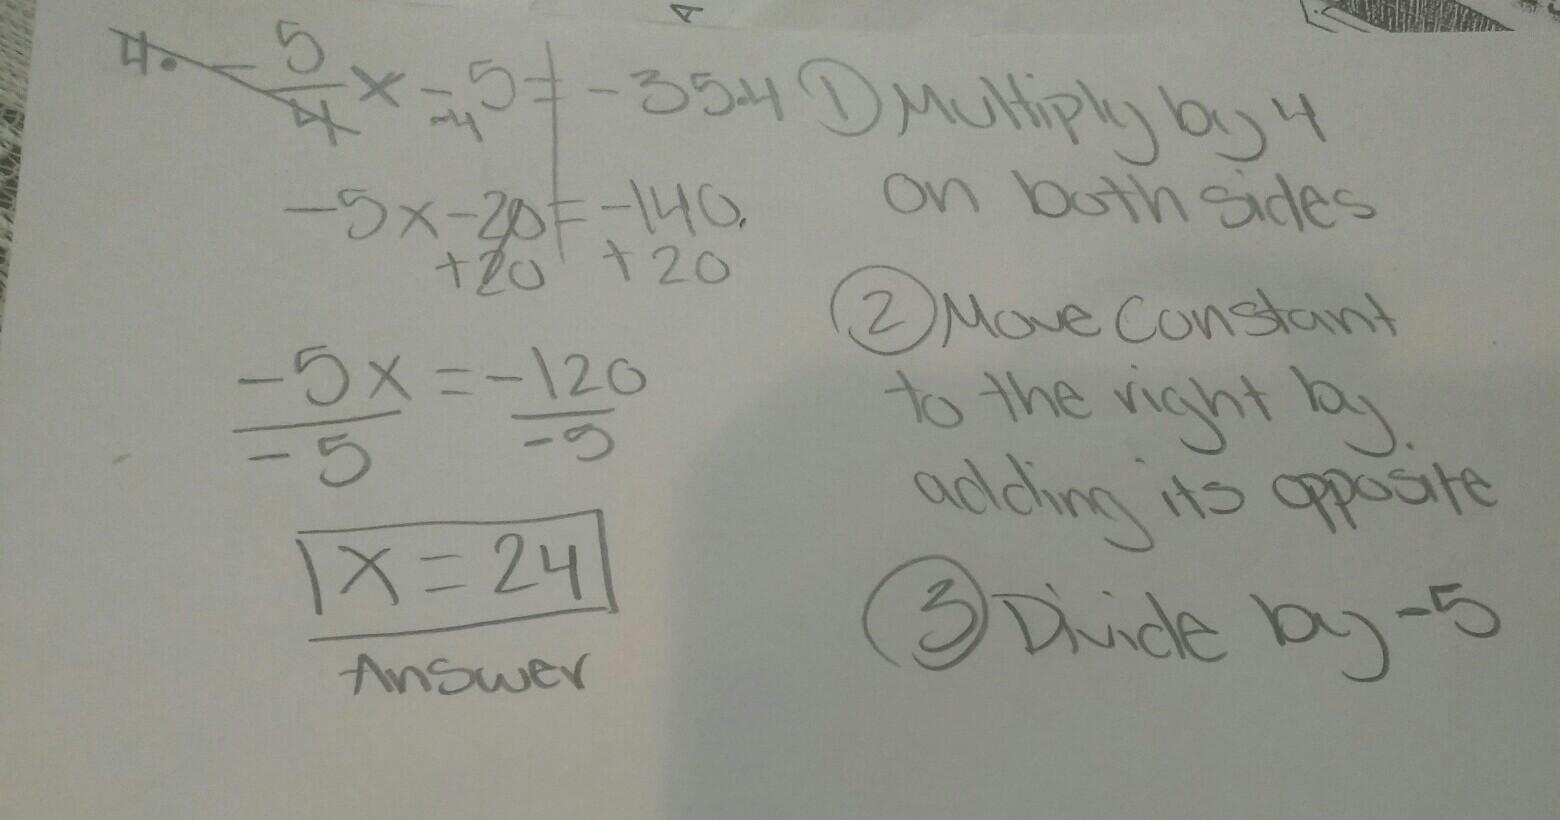 4. - 5/4 x - 5 = -35·4
·4
-5x - 20 = -140.
+20 +20
-5x = -120
-5 -5
x = 24
Answer
1) Multiply by 4
on both sides
2) Move constant
to the right by
adding its opposite
3) Divide by -5